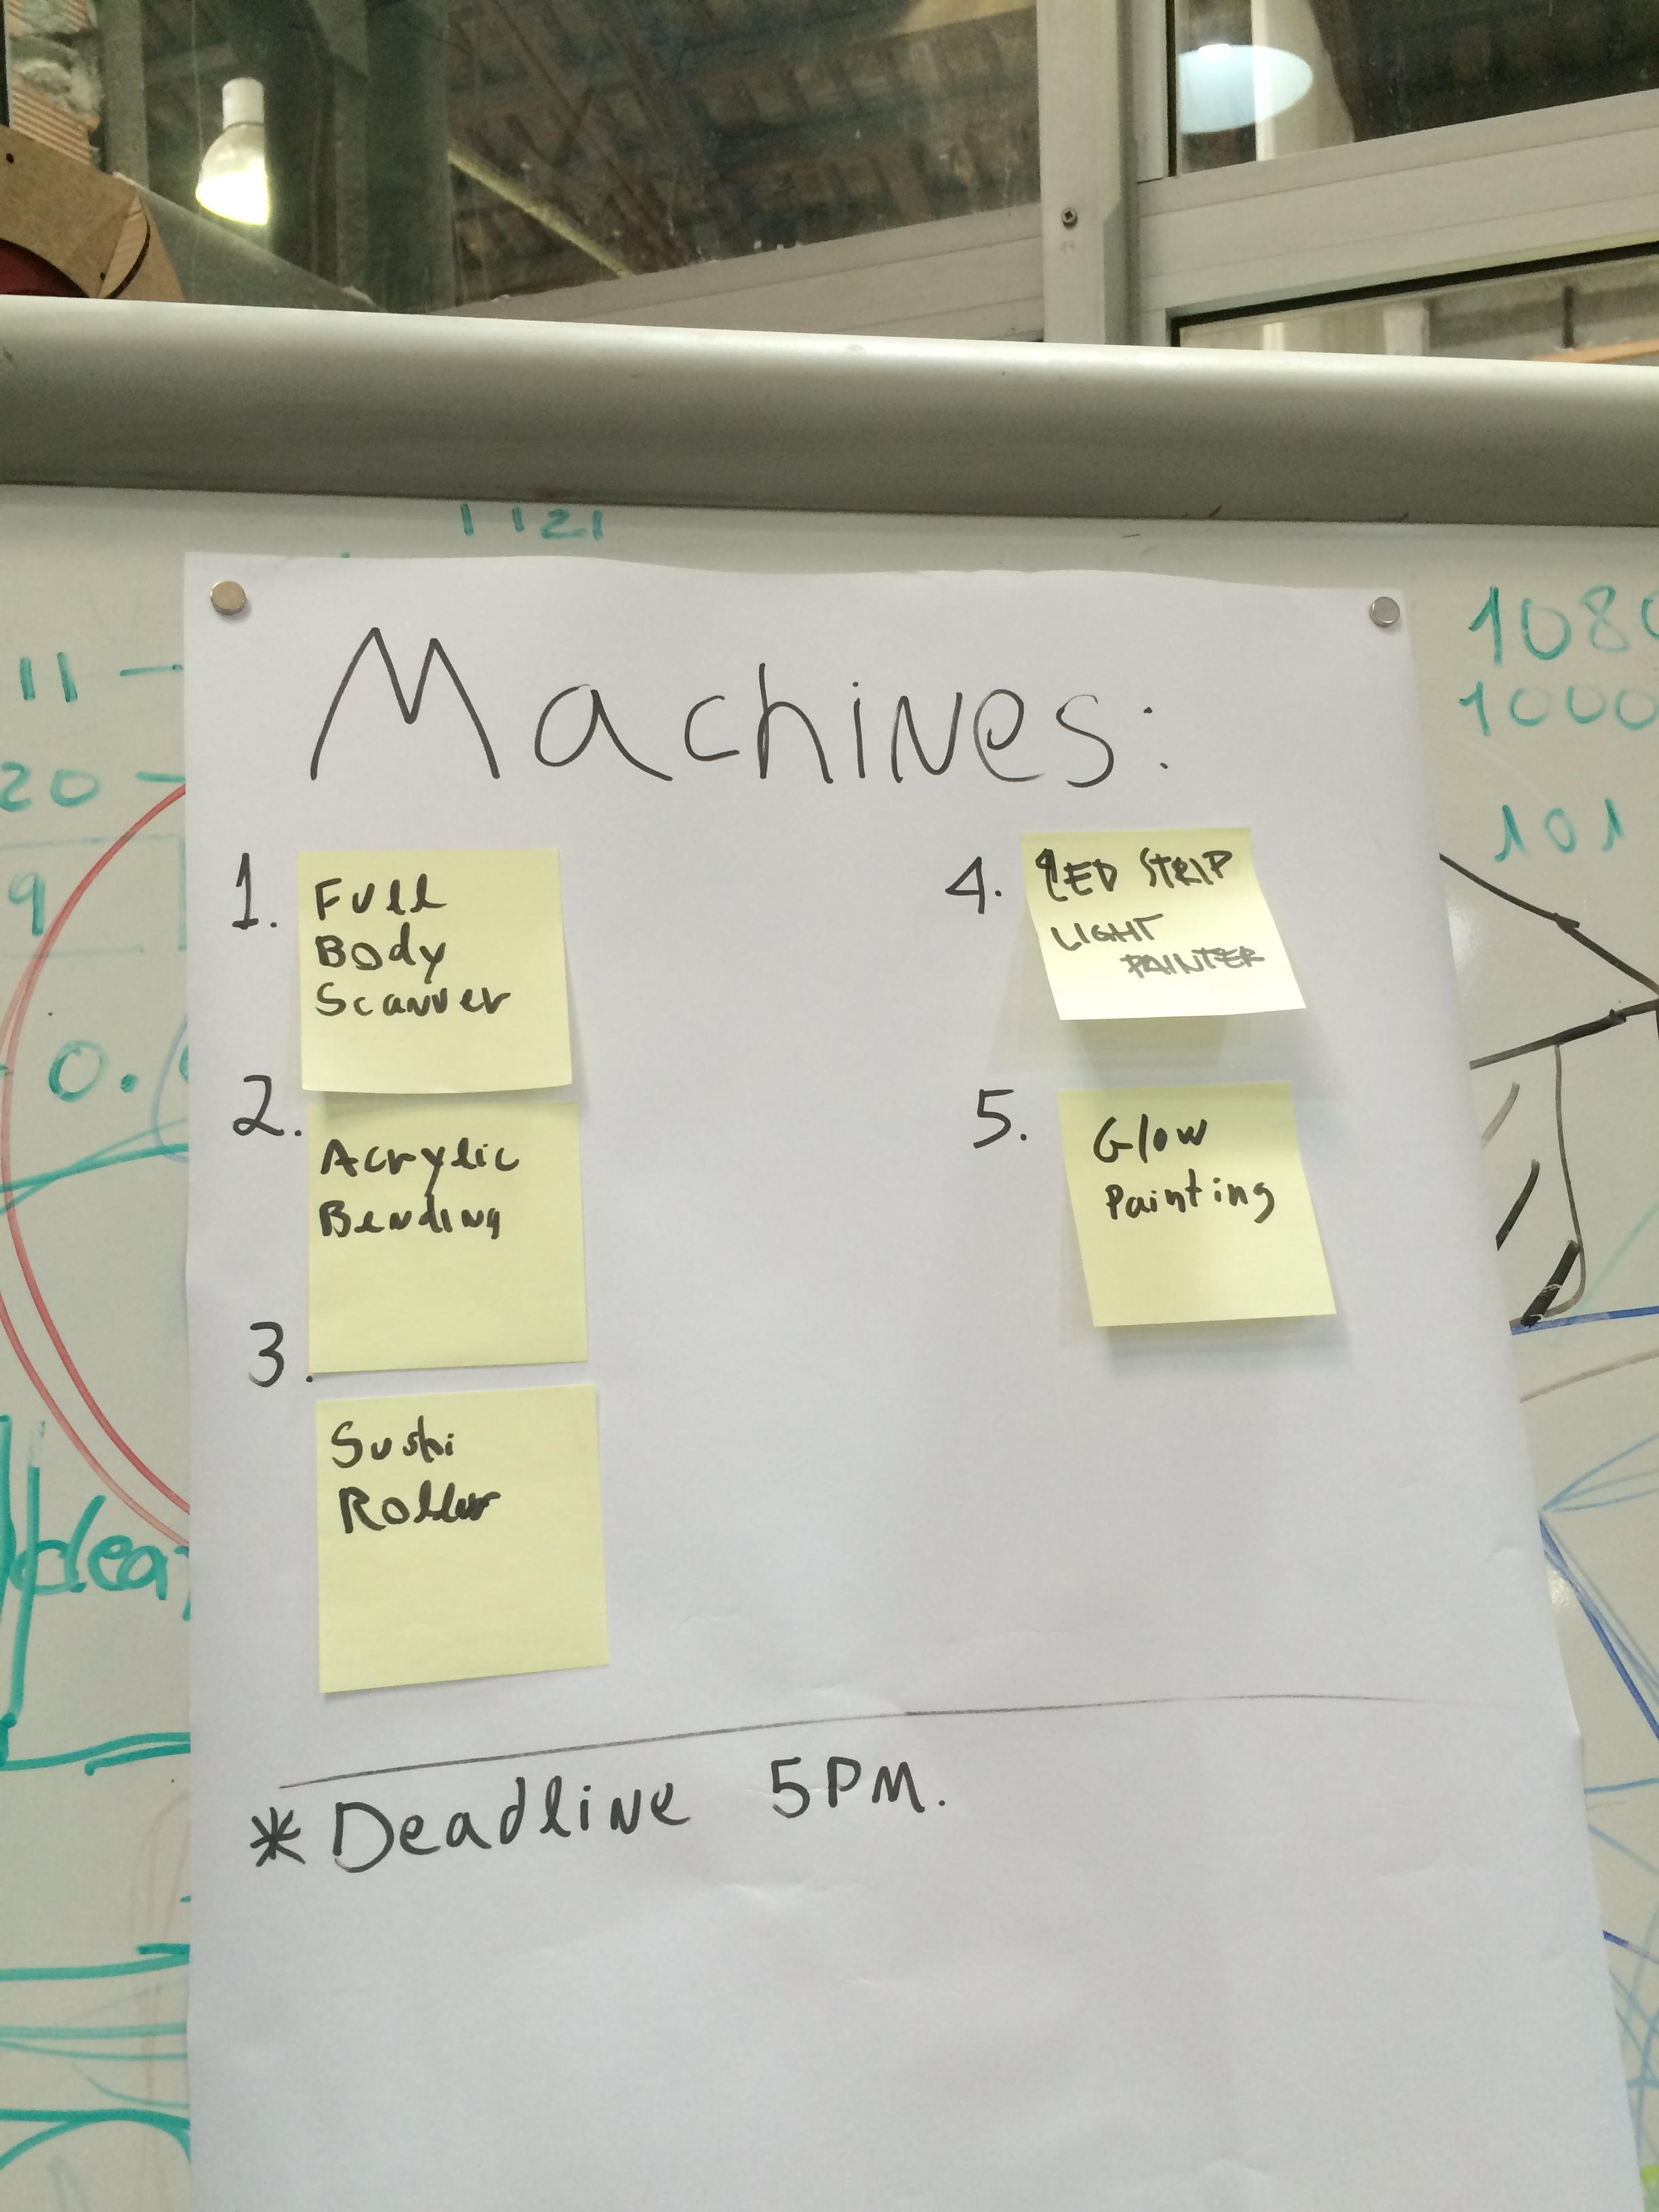 1121
11 -
20 -
9
0.
Idea
Machines:
1.
Full
Body
Scanner
2.
Acrylic
Bending
3.
Sushi
Roller
4.
LED STRIP
LIGHT
PAINTER
5.
Glow
Painting
* Deadline 5PM.
1080
1000
101